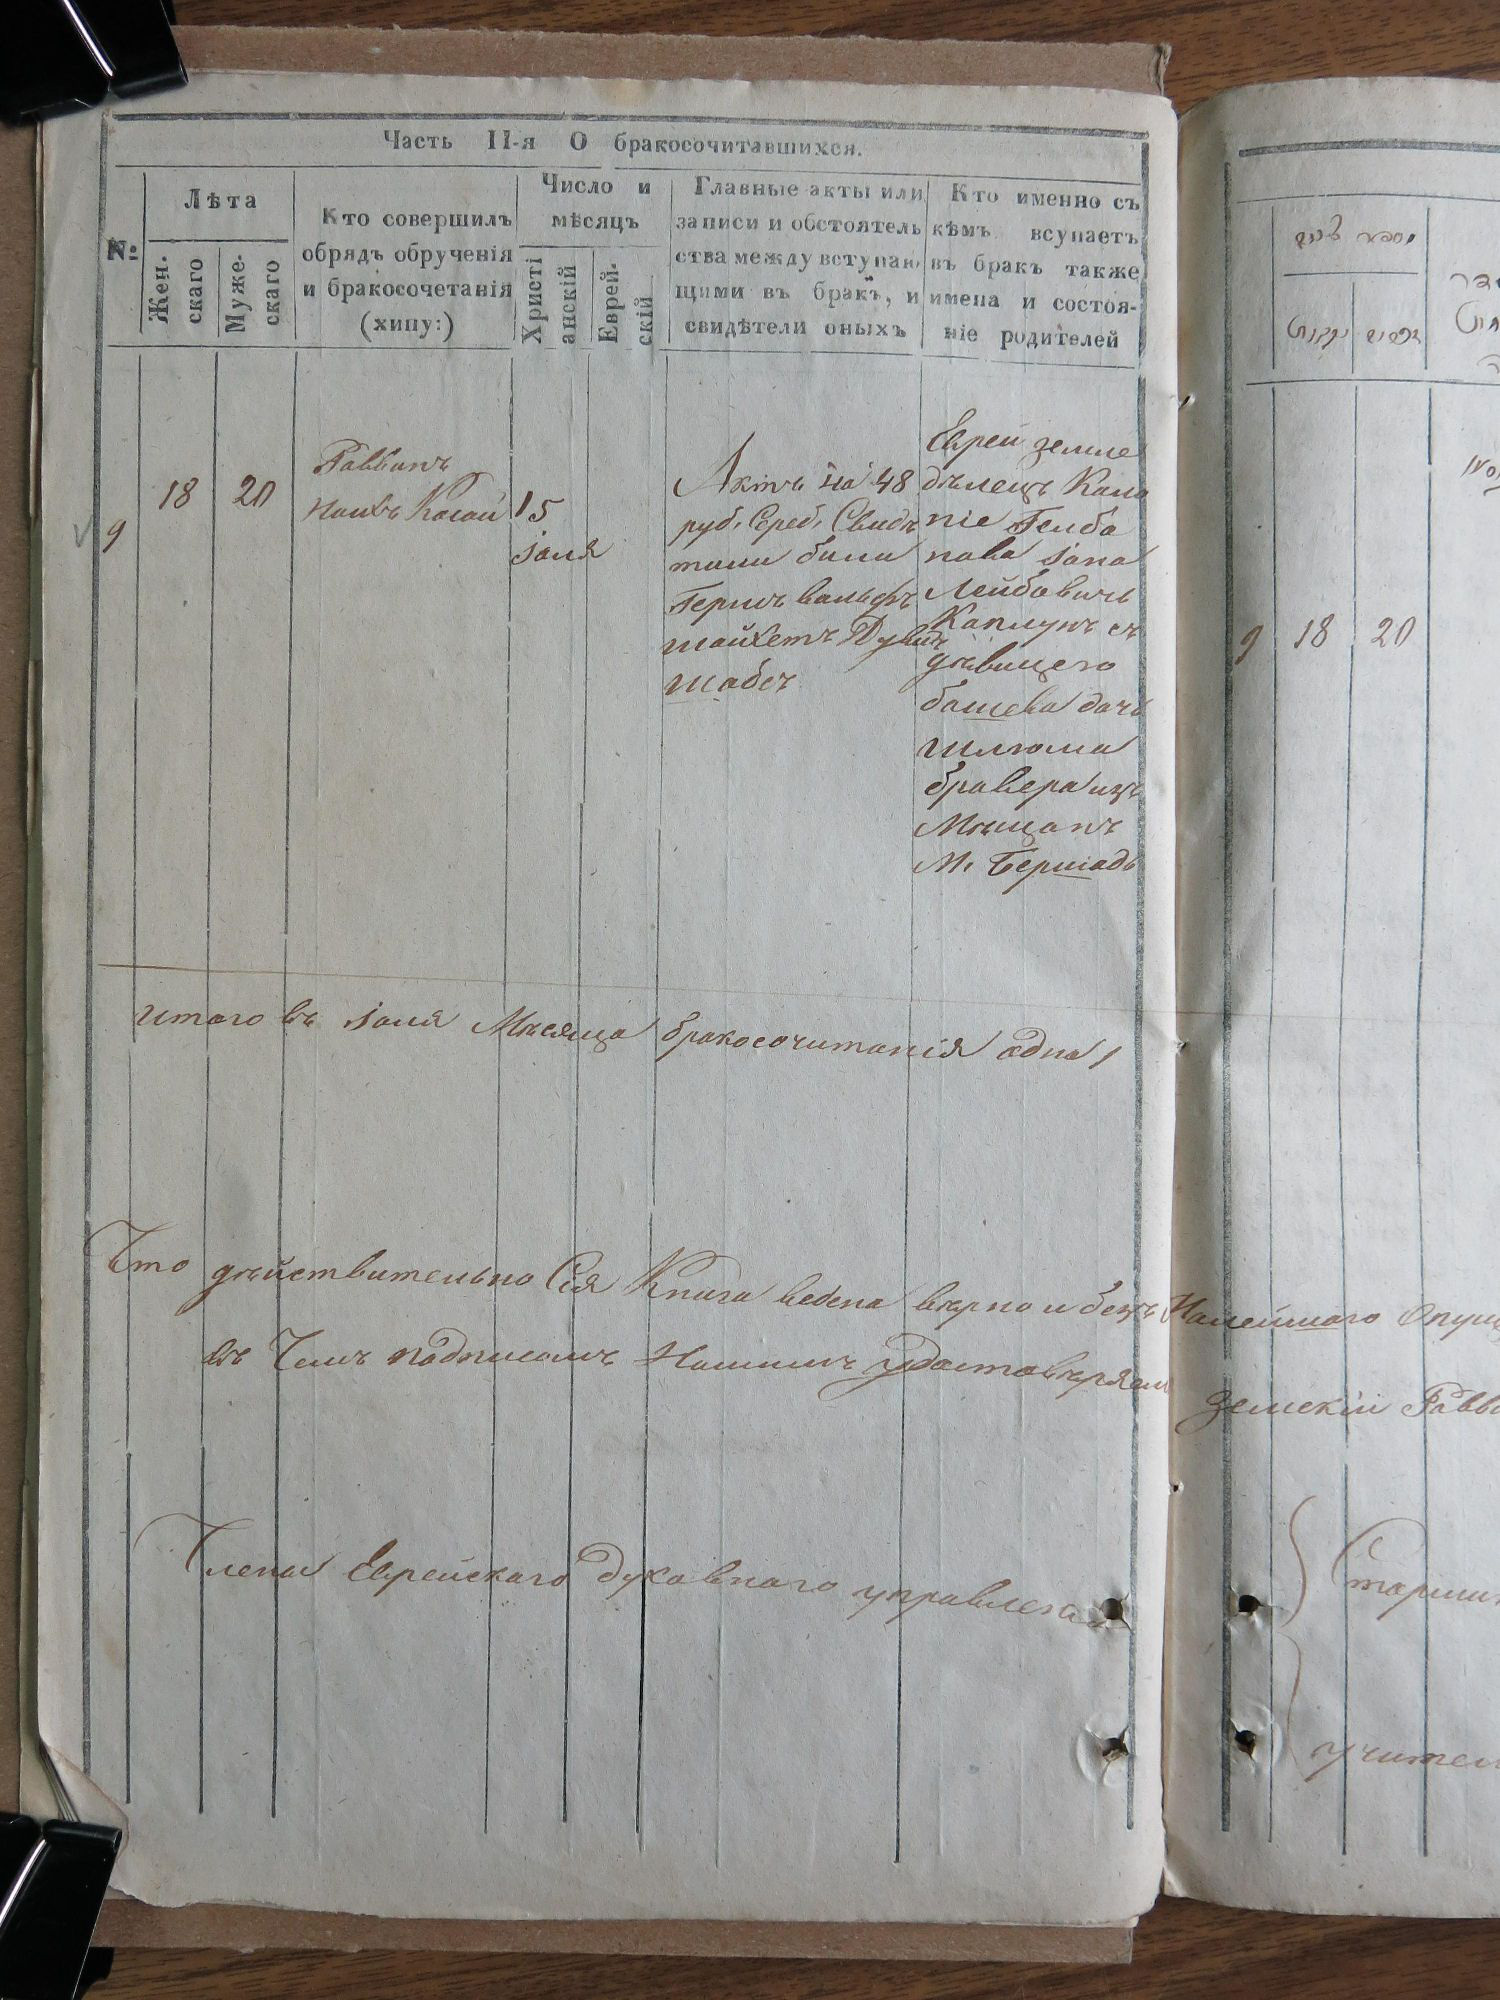 Часть II-я О бракосочитавшихся.
№
Лѣта
Жен.
скаго
Муже-
скаго
Кто совершилъ
обрядъ обрученія
и бракосочетанія
(хипу:)
Число и
мѣсяцъ
Христі
анскій
Еврей-
скій
Главные акты или
записи и обстоятель
ства между вступаю
щими въ бракъ, и
свидѣтели оныхъ
Кто именно съ
кѣмъ вступаетъ
въ бракъ также
имена и состоя-
ніе родителей
9
18
20
Раввинъ
15
іюля
Актъ на 48
руб. Сереб. Свидѣ
тили били
Гершъ Вольфъ
Шобсъ
Еврей земле
дѣлецъ Коло
ніе
Лейбовичъ
Каплунъ съ
дѣвицего
башева дочь
шлюма
бравера изъ
Мѣщанъ
М. Бершадь
итого въ іюля Мѣсяца бракосочитанія одна 1
Что дѣйствительно Сія Книга ведена вѣрно и безъ Малейшаго Опущ
въ Чемъ подписомъ Нашимъ удостовѣряем
Земскій Равви
Члены Еврейскаго Духовнаго управления
9
18
20
Учител